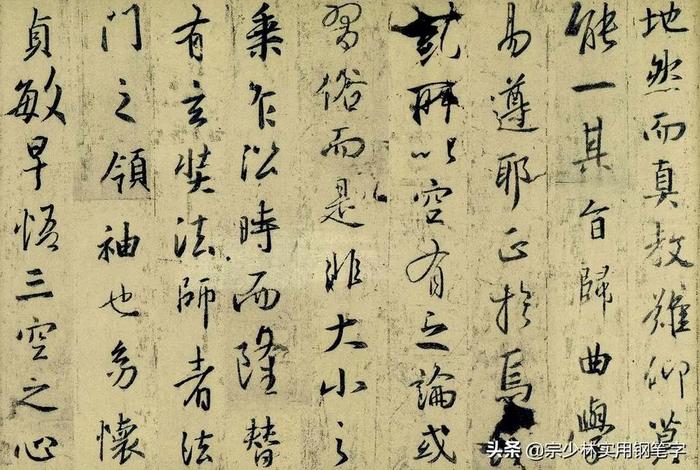 地然而真教難仰莫
能一其旨歸曲學
易遵耶正於焉
所以空有之論或
習俗而是非大小之
乘乍沿時而隆替
有玄奘法師者法
門之領袖也幼懷
貞敏早悟三空之心
头条 @宗少林实用钢笔字